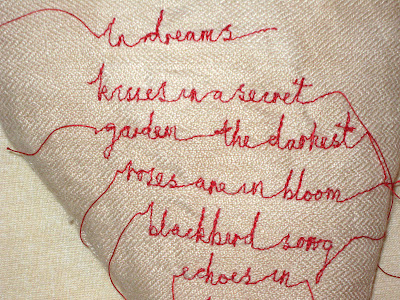 in dreams
kisses in a secret
garden the darkest
roses are in bloom
blackbird song
echoes in